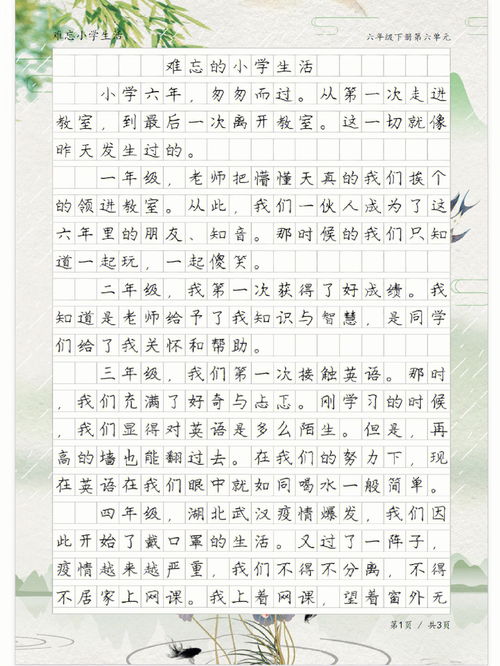 难忘小学生活
六年级下册第六单元
难忘的小学生活
小学六年，匆匆而过。从第一次走进
教室，到最后一次离开教室。这一切就像
昨天发生过的。
一年级，老师把懵懂天真的我们挨个
的领进教室。从此，我们一伙人成为了这
六年里的朋友、知音。那时候的我们只知
道一起玩，一起傻笑。
二年级，我第一次获得了好成绩。我
知道是老师给予了我知识与智慧，是同学
们给了我关怀和帮助。
三年级，我们第一次接触英语。那时
，我们充满了好奇与忐忑。刚学习的时候
，我们显得对英语是多么陌生。但是，再
高的墙也能翻过去。在我们的努力下，现
在英语在我们眼中就如同喝水一般简单。
四年级，湖北武汉疫情爆发，我们因
此开始了戴口罩的生活。又过了一阵子，
疫情越来越严重，我们不得不分离，不得
不居家上网课。我上着网课，望着窗外无
第1页 / 共3页